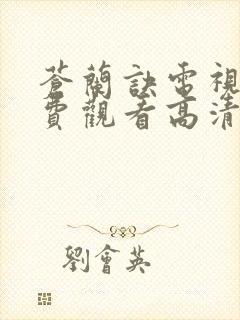 蒼蘭訣電視
費觀看高清
劉會英